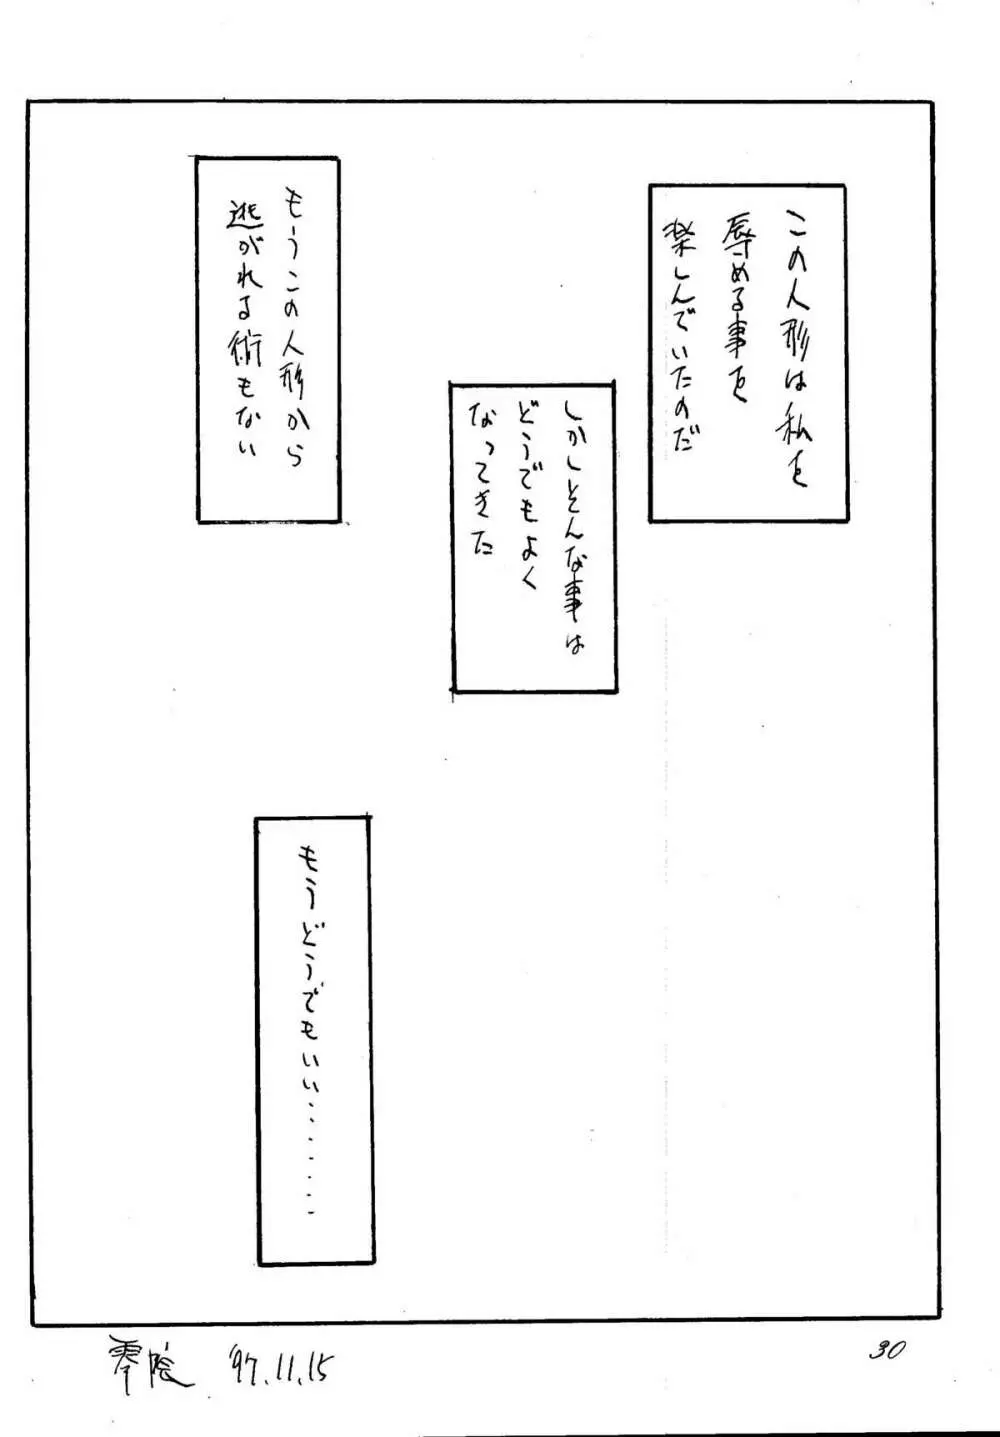 この人形は私を
辱める事を
楽しんでいたのだ
しかしそんな事は
どうでもよく
なってきた
もうこの人形から
逃がれる術もない
もうどうでもいい・・・・・・・
零陰 '97.11.15
30